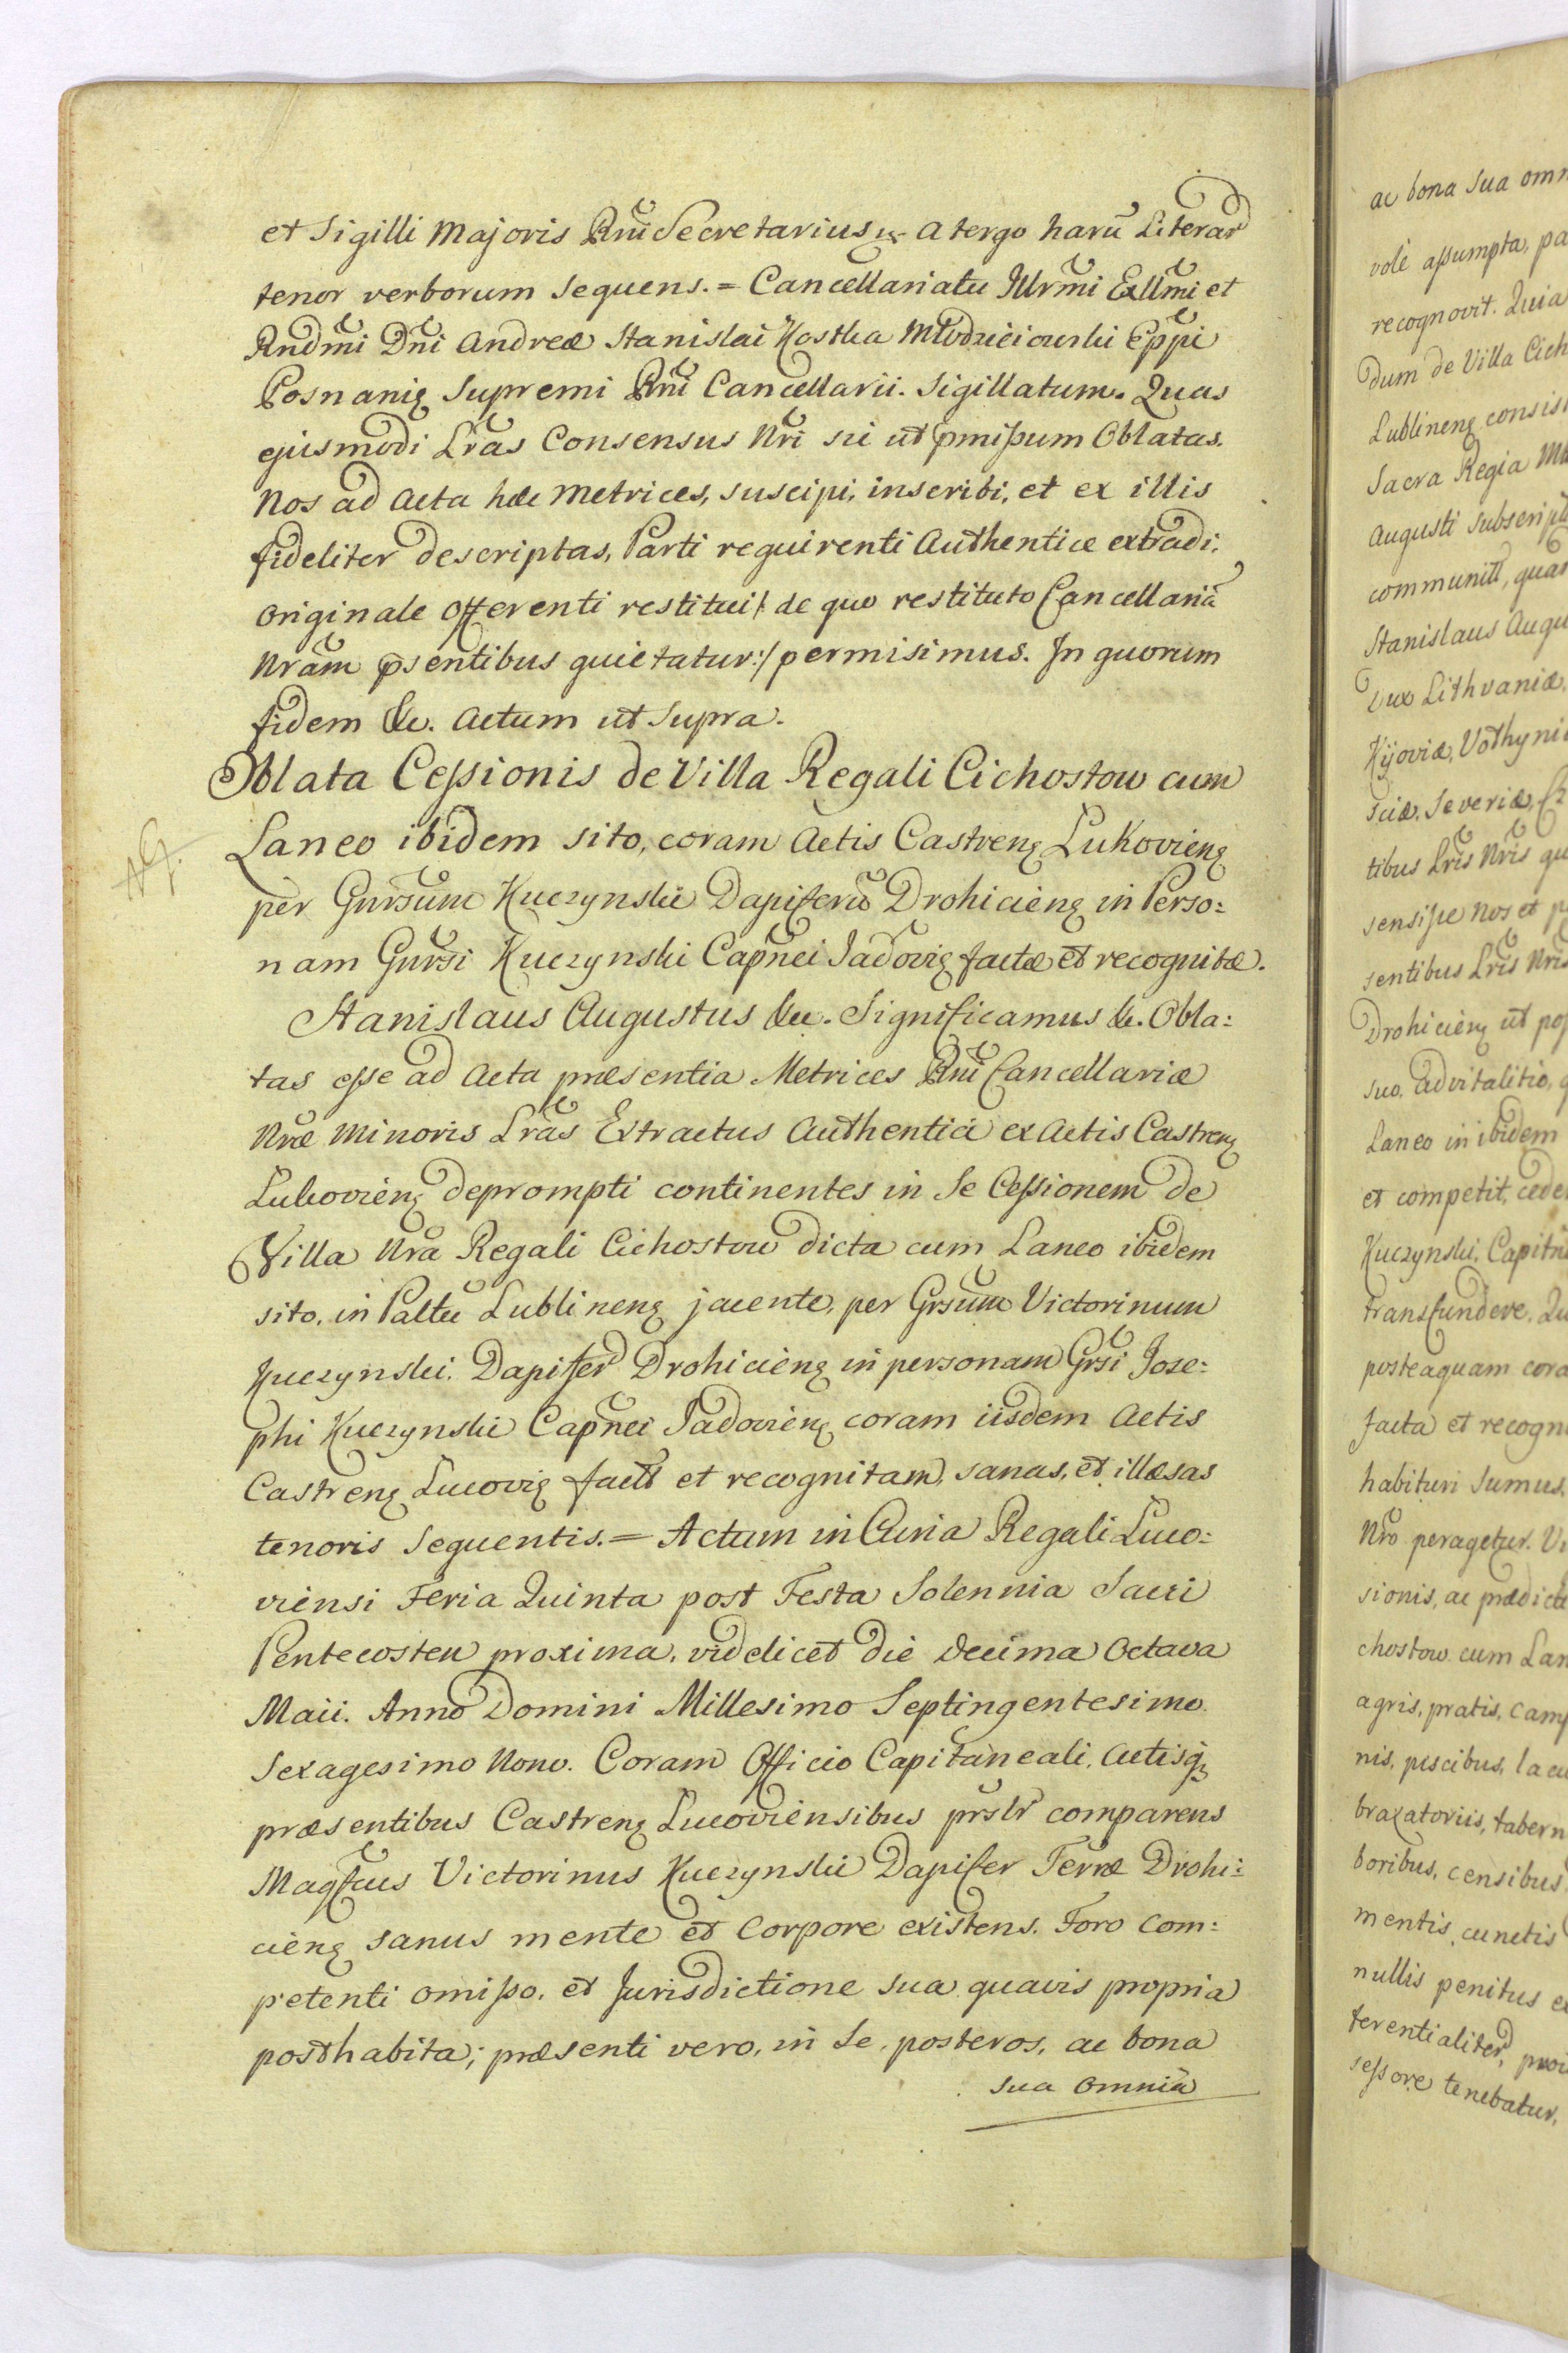 et Sigilli Majoris Rni Secretarius. A tergo harū Literar
tenor verborum sequens. = Cancellariatu Illrmi Exllmi et
Rndmi Dni Andreæ Stanislai Kostka Młodzieiowski Eppi
Posnanię Supremi Rni Cancellarii. Sigillatum. Quas
ejusmodi Lras Consensus Nri sic ut pmissum Oblatas.
Nos ad Acta hæc Metrices, suscipi, inscribi, et ex illis
fideliter descriptas, Parti requirenti Authentice extradi,
Originale Offerenti restitui /: de quo restituto Cancellariā
Nram psentibus quietatur :/ permisimus. In quorum
fidem &c. Actum ut supra.
Oblata Cessionis de Villa Regali Cichostow cum
Laneo ibidem sito, coram Actis Castren Lukovien
per Gnrsum Kuczynski Dapiferū Drohicien in Perso=
nam Gnrsi Kuczynski Capnei Jadovię factæ et recognitæ.
Stanislaus Augustus &c. Significamus &c. Obla=
tas esse ad Acta præsentia Metrices Rni Cancellariæ
Nræ Minoris Lras Extractus Authentici ex Actis Castren
Lukovien deprompti continentes in se Cessionem de
Villa Nra Regali Cichostow dicta cum Laneo ibidem
sito, in Paltu Lublinen jacente, per Grsum Victorinum
Kuczynski, Dapifer Drohicien in personam Grsi Jose=
phi Kuczynski Capnei Jadovien coram iisdem Actis
Castren Lucovię factā et recognitam, sanas, et illæsas
tenoris sequentis. = Actum in Curia Regali Luco=
viensi Feria Quinta post Festa Solennia Sacri
Pentecosten proxima, videlicet die decima Octava
Maii. Anno Domini Millesimo Septingentesimo
Sexagesimo Nono. Coram Officio Capitaneali, Actisq
præsentibus Castren Lucoviensibus prslr comparens
Magfcus Victorinus Kuczynski Dapifer Terræ Drohi=
cien sanus mente et Corpore existens. Foro Com=
petenti omisso, et Jurisdictione sua quavis propria
posthabita; præsenti vero, in se, posteros, ac bona
sua omnia
ac bona sua omn
vole assumpta, pa
recognovit. Quia
dum de Villa Cich
Lublinen consis
Sacra Regia Ma
Augusti subscript
communit, quar
Stanislaus Augu
Dux Lithvaniæ,
Kijoviæ, Volhyni
sciæ, Severiæ, Cz
tibus Lris Nris qu
sensisse Nos et p
sentibus Lris Nris
Drohicien ut pos
suo, advitalitio, q
Laneo in ibidem
et competit, ceder
Kuczynski, Capitn
transfundere, Qu
posteaquam cora
facta et recogn
habituri sumus,
Nro peragetur. Vi
sionis, ac prædicta
chostow cum Lan
agris, pratis, camp
nis, piscibus, lacu
braxatoriis, tabern
boribus, censibus
mentis, cunctis
nullis penitus ex
terentialiter, prou
sessore tenebatur,